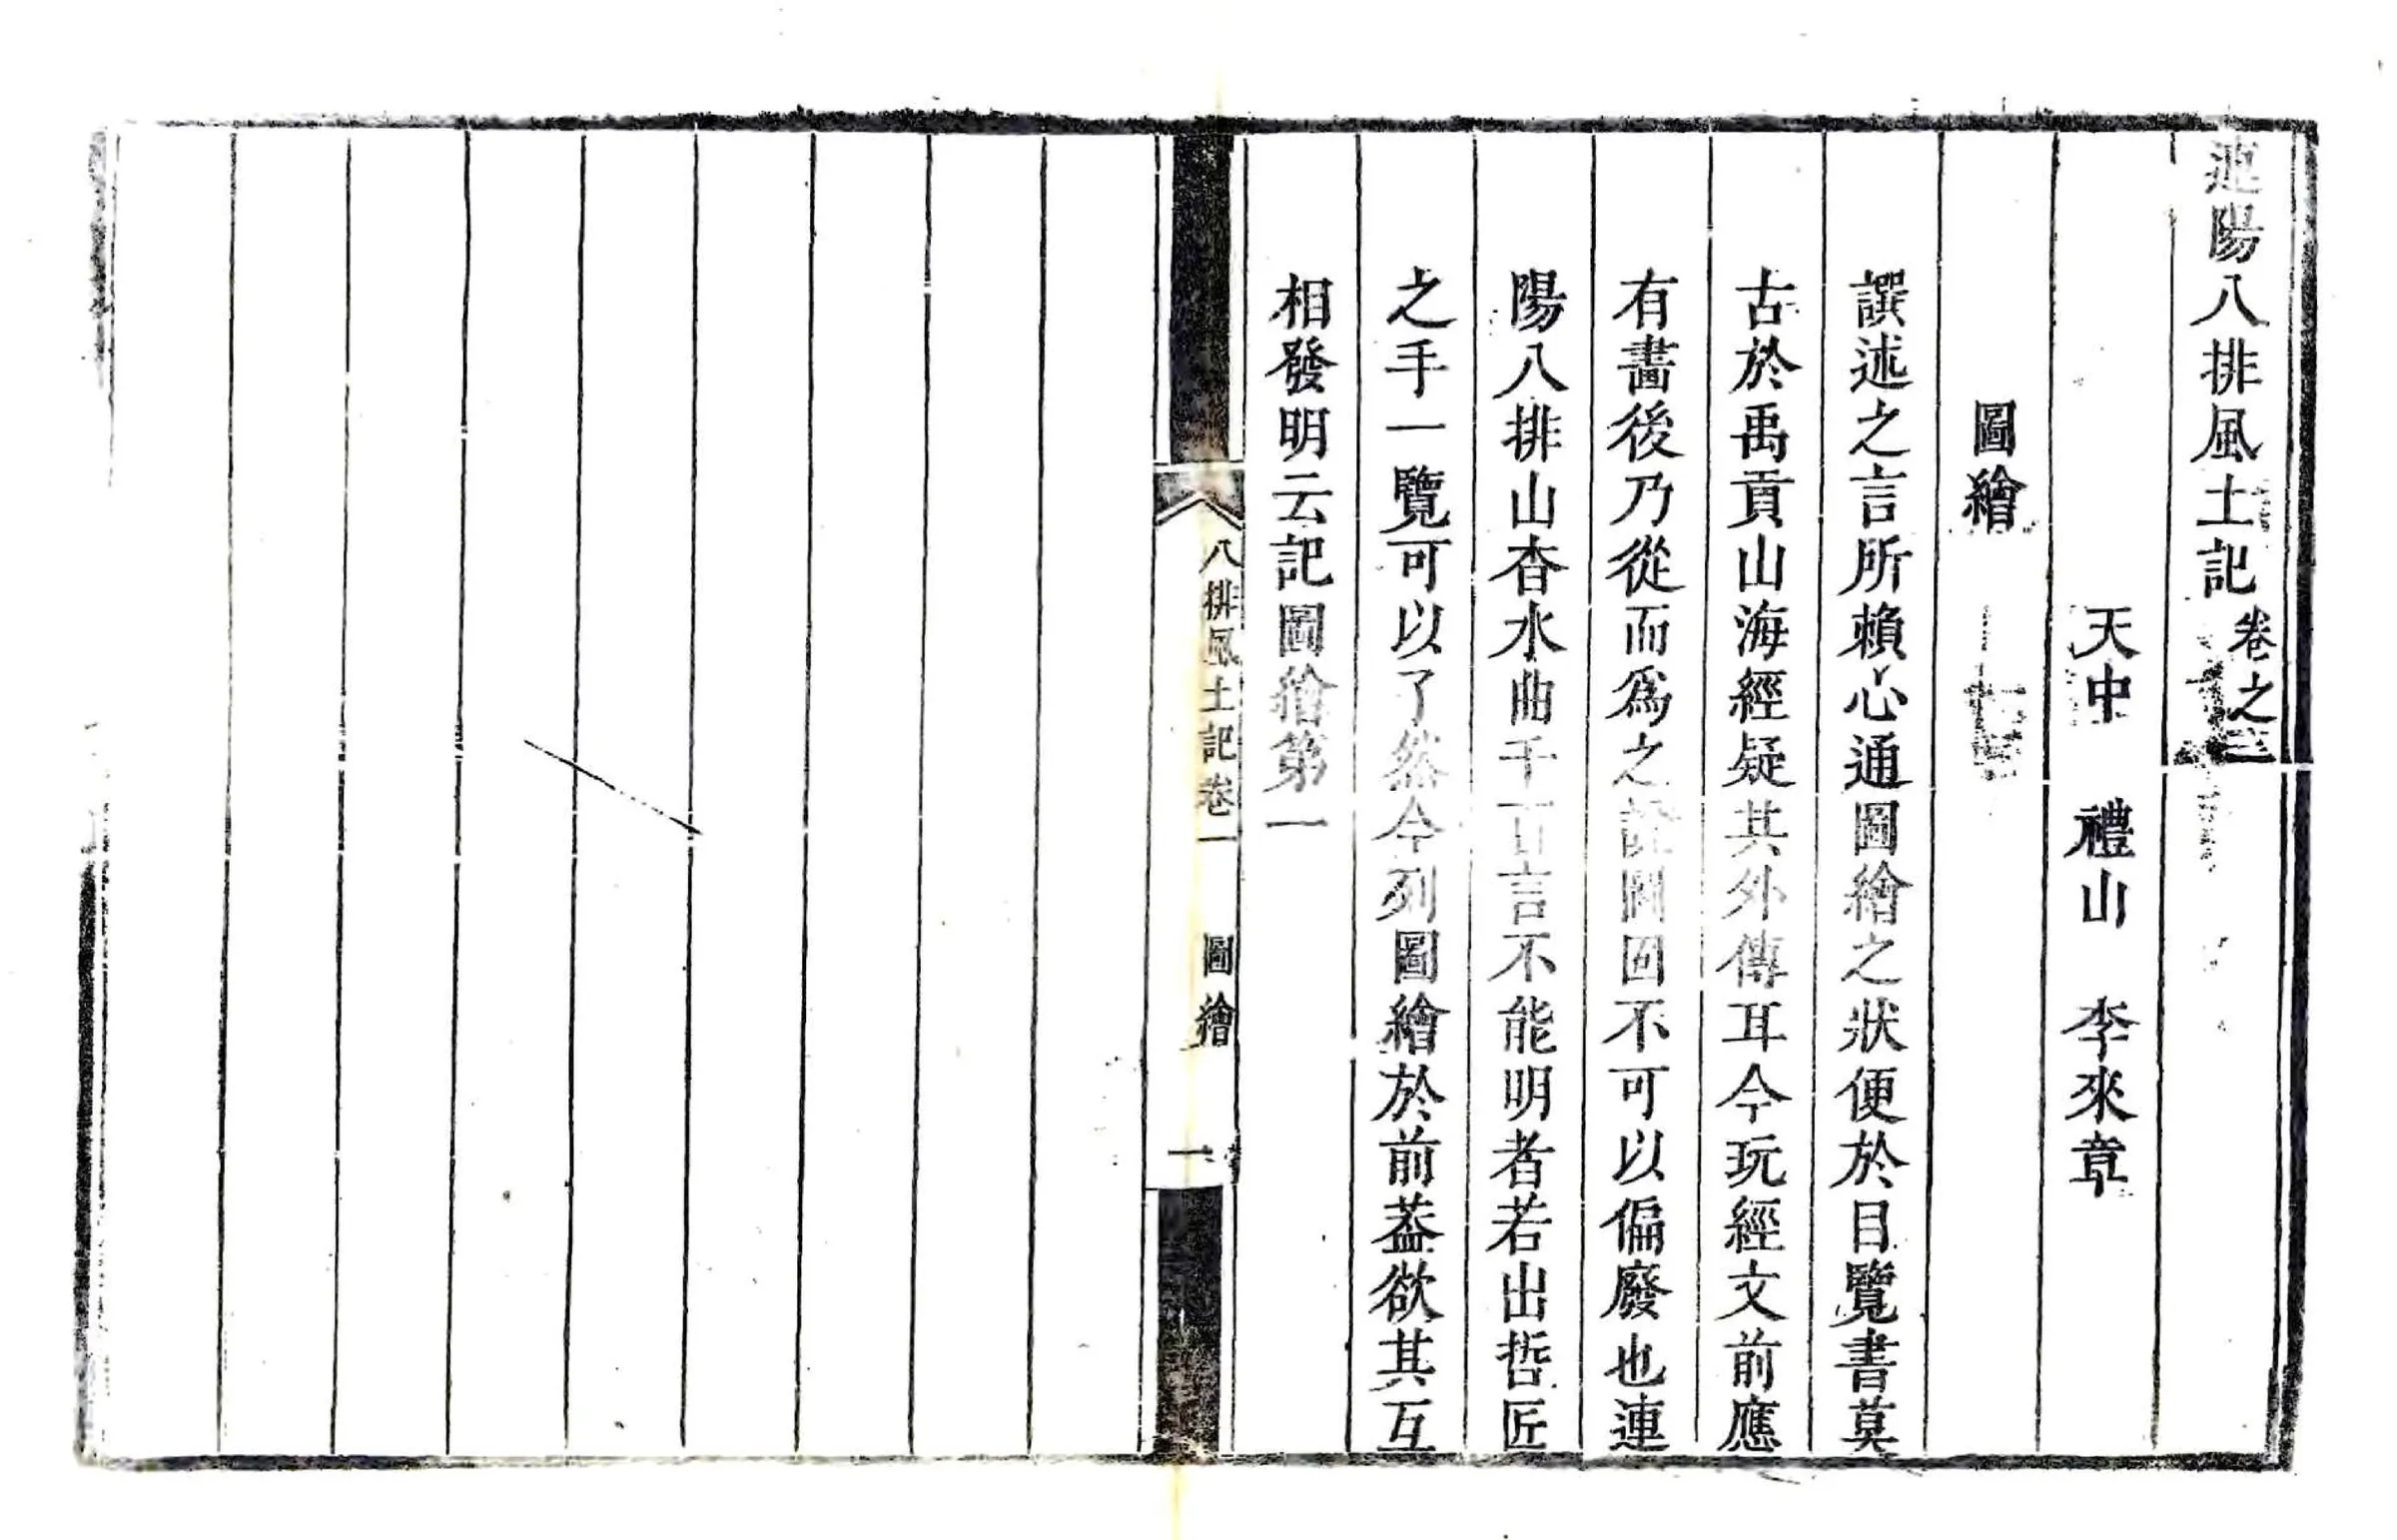 連陽八排風土記卷之一
天中 禮山 李來章
圖繪
譔述之言所賴心通圖繪之狀便於目覽書莫
古於禹貢山海經疑其外傳耳今玩經文前應
有畵後乃從而爲之記圖固不可以偏廢也連
陽八排山杳水曲千百言不能明者若出哲匠
之手一覽可以了然今列圖繪於前葢欲其互
相發明云記圖繪第一
八排風土記卷一 圖繪 一